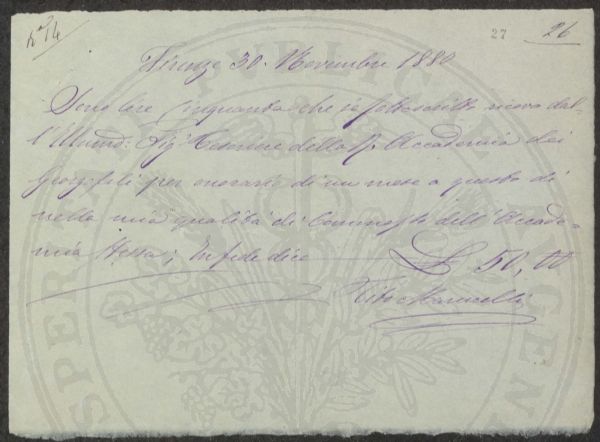 N° 14
27 26
Firenze 30. Novembre 1880
Sono lire Cinquanta che io sottoscritto ricevo dal-
l'Illmo: Sig: Cassiere della R. Accademia dei
Georgofili per onorario di un mese a questo dì
nella mia qualità di Commesso dell'Accade-
mia stessa; In fede dico £ 50,00
Tito Marucelli
PROSPER PUBLICAE